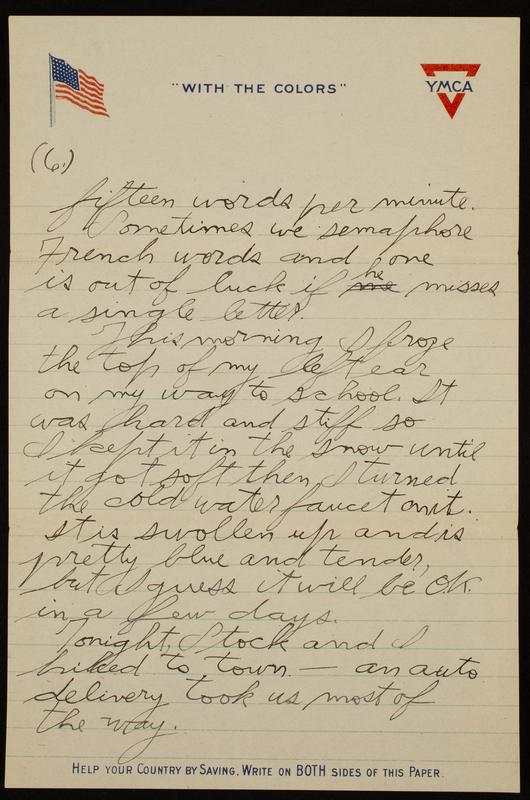 "WITH THE COLORS"
YMCA
(6.)
fifteen words per minute.
Sometimes we semaphore
French words and one
is out of luck if he misses
a single letter.
This morning I froze
the top of my left ear
on my way to school. It
was hard and stiff so
I kept it in the snow until
it got soft then I turned
the cold water faucet on it.
It is swollen up and is
pretty blue and tender,
but I guess it will be O.K.
in a few days.
Tonight, Stock and I
hiked to town — an auto
delivery took us most of
the way.
HELP YOUR COUNTRY BY SAVING. WRITE ON BOTH SIDES OF THIS PAPER.